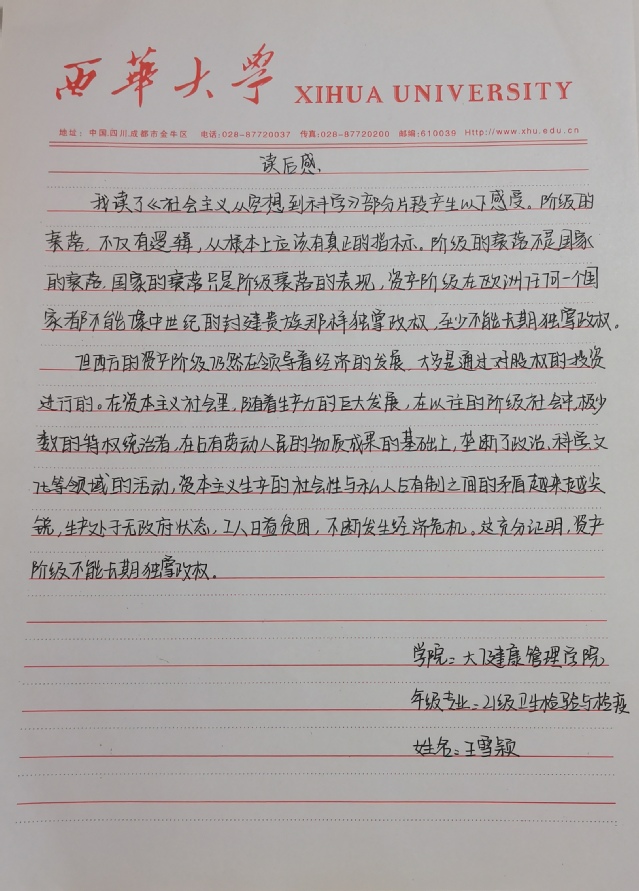 西華大學 XIHUA UNIVERSITY
地址：中国.四川.成都市金牛区 电话:028-87720037 传真:028-87720200 邮编:610039 Http://www.xhu.edu.cn
读后感.
我读了《社会主义从空想到科学》部分片段产生以下感受。阶级的
衰落，不仅有逻辑，从根本上应该有真正的指标。阶级的衰落不是国家
的衰落，国家的衰落只是阶级衰落的表现，资产阶级在欧洲任何一个国
家都不能像中世纪的封建贵族那样独享政权，至少不能长期独享政权。
但西方的资产阶级仍然在领导着经济的发展，大多是通过对股权的投资
进行的。在资本主义社会里，随着生产力的巨大发展，在以往的阶级社会中，极少
数的特权统治者，在占有劳动人民的物质成果的基础上，垄断了政治、科学、文
化等领域的活动，资本主义生产的社会性与私人占有制之间的矛盾越来越尖
锐，生产处于无政府状态，工人日益贫困，不断发生经济危机。这充分证明，资产
阶级不能长期独享政权。
学院：大健康管理学院
年级专业：21级卫生检验与检疫
姓名：王雪颖